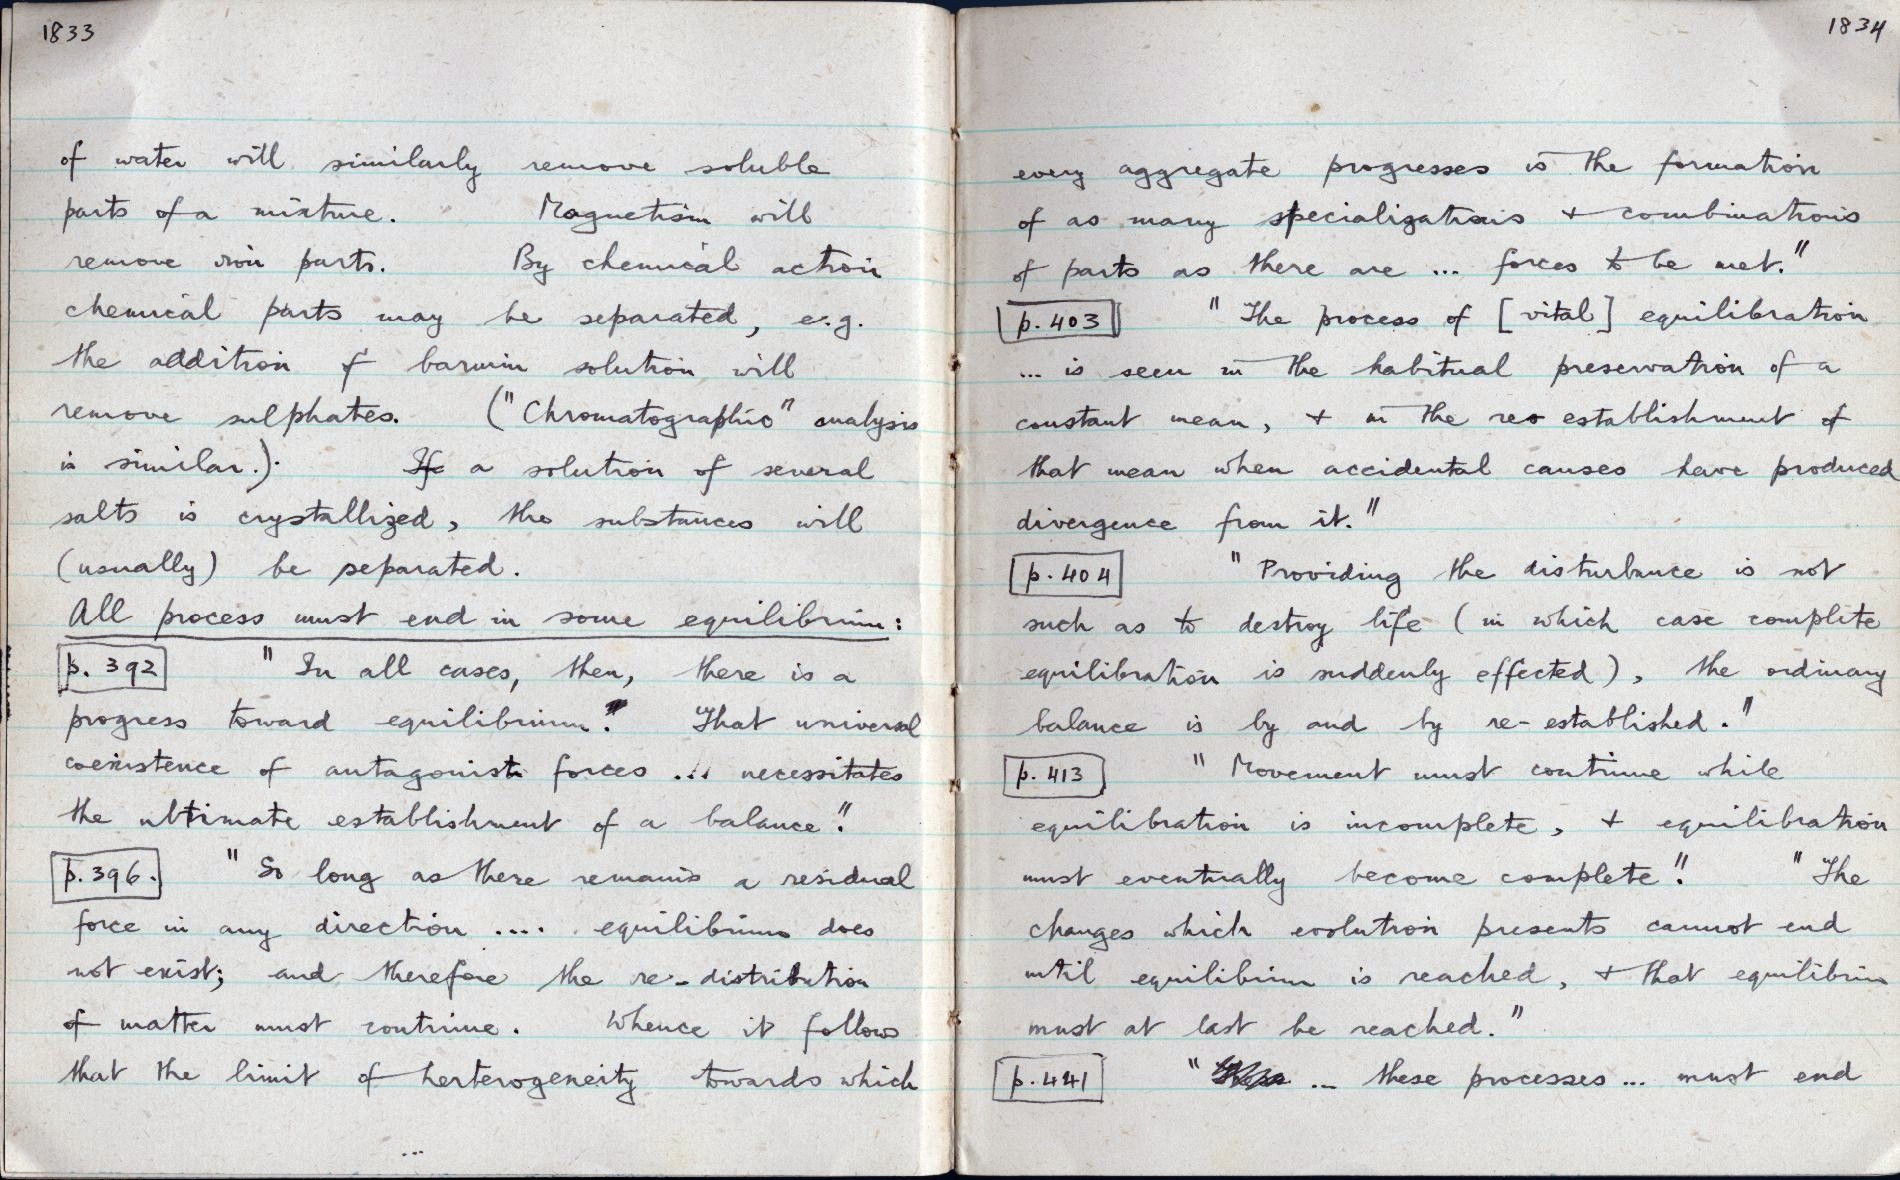 1833
of water will similarly remove soluble
parts of a mixture. Magnetism will
remove iron parts. By chemical action
chemical parts may be separated, e.g.
the addition of barium solution will
remove sulphates. ("Chromatographic" analysis
is similar.). If a solution of several
salts is crystallized, the substances will
(usually) be separated.
All process must end in some equilibrium:
p. 392 "In all cases, then, there is a
progress toward equilibrium. That universal
coexistence of antagonist forces ... necessitates
the ultimate establishment of a balance."
p. 396. "So long as there remains a residual
force in any direction .... equilibrium does
not exist; and therefore the re-distribution
of matter must continue. Whence it follows
that the limit of herterogeneity towards which
...
1834
every aggregate progresses is the formation
of as many specializations + combinations
of parts as there are ... forces to be met."
p. 403 "The process of [vital] equilibration
... is seen in the habitual preservation of a
constant mean, + in the re establishment of
that mean when accidental causes have produced
divergence from it."
p. 404 "Providing the disturbance is not
such as to destroy life (in which case complete
equilibration is suddenly effected), the ordinary
balance is by and by re-established."
p. 413 "Movement must continue while
equilibration is incomplete, + equilibration
must eventually become complete". "The
changes which evolution presents cannot end
until equilibrium is reached, + that equilibrium
must at last be reached."
p. 441 " ... these processes ... must end